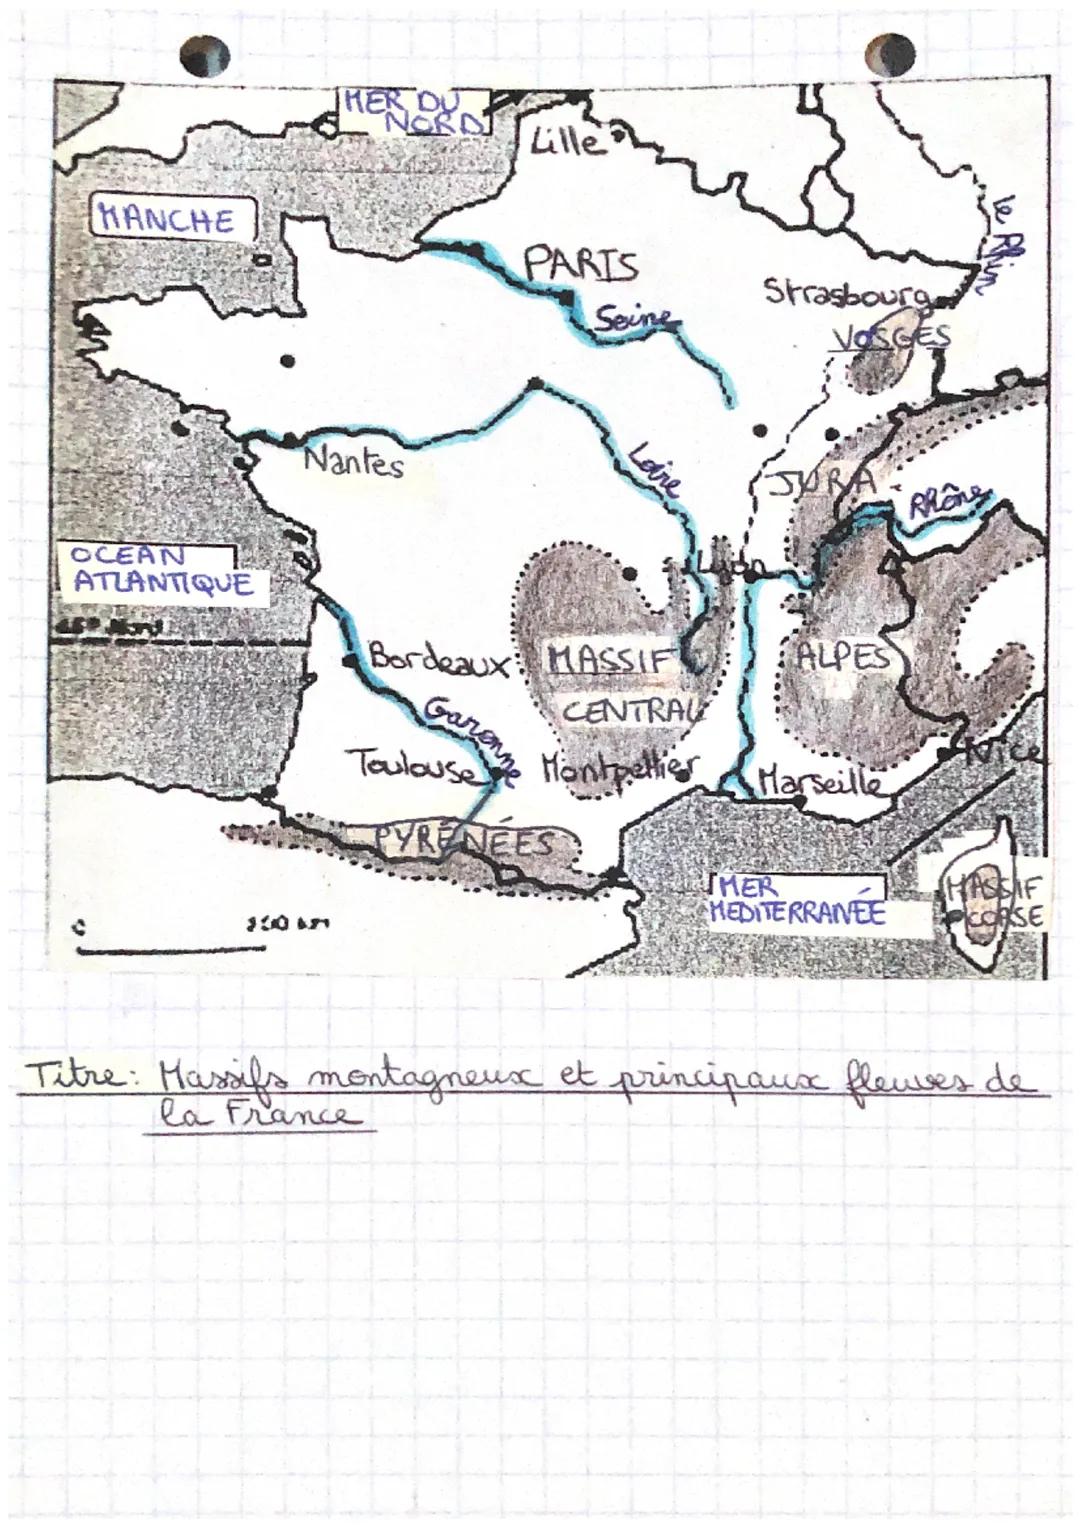 MER DU
NORD
Lille
MANCHE
le Rhin
PARIS
Strasbourg
Seine
VOSGES
Nantes
Loire
JURA
Rhône
OCEAN
ATLANTIQUE
Lyon
Bordeaux
MASSIF
CENTRAL
ALPES
Garonne
Toulouse
Montpellier
Marseille
Nice
PYRÉNÉES
MER
MEDITERRANÉE
MASSIF
CORSE
Titre: Massifs montagneux et principaux fleuves de
la France